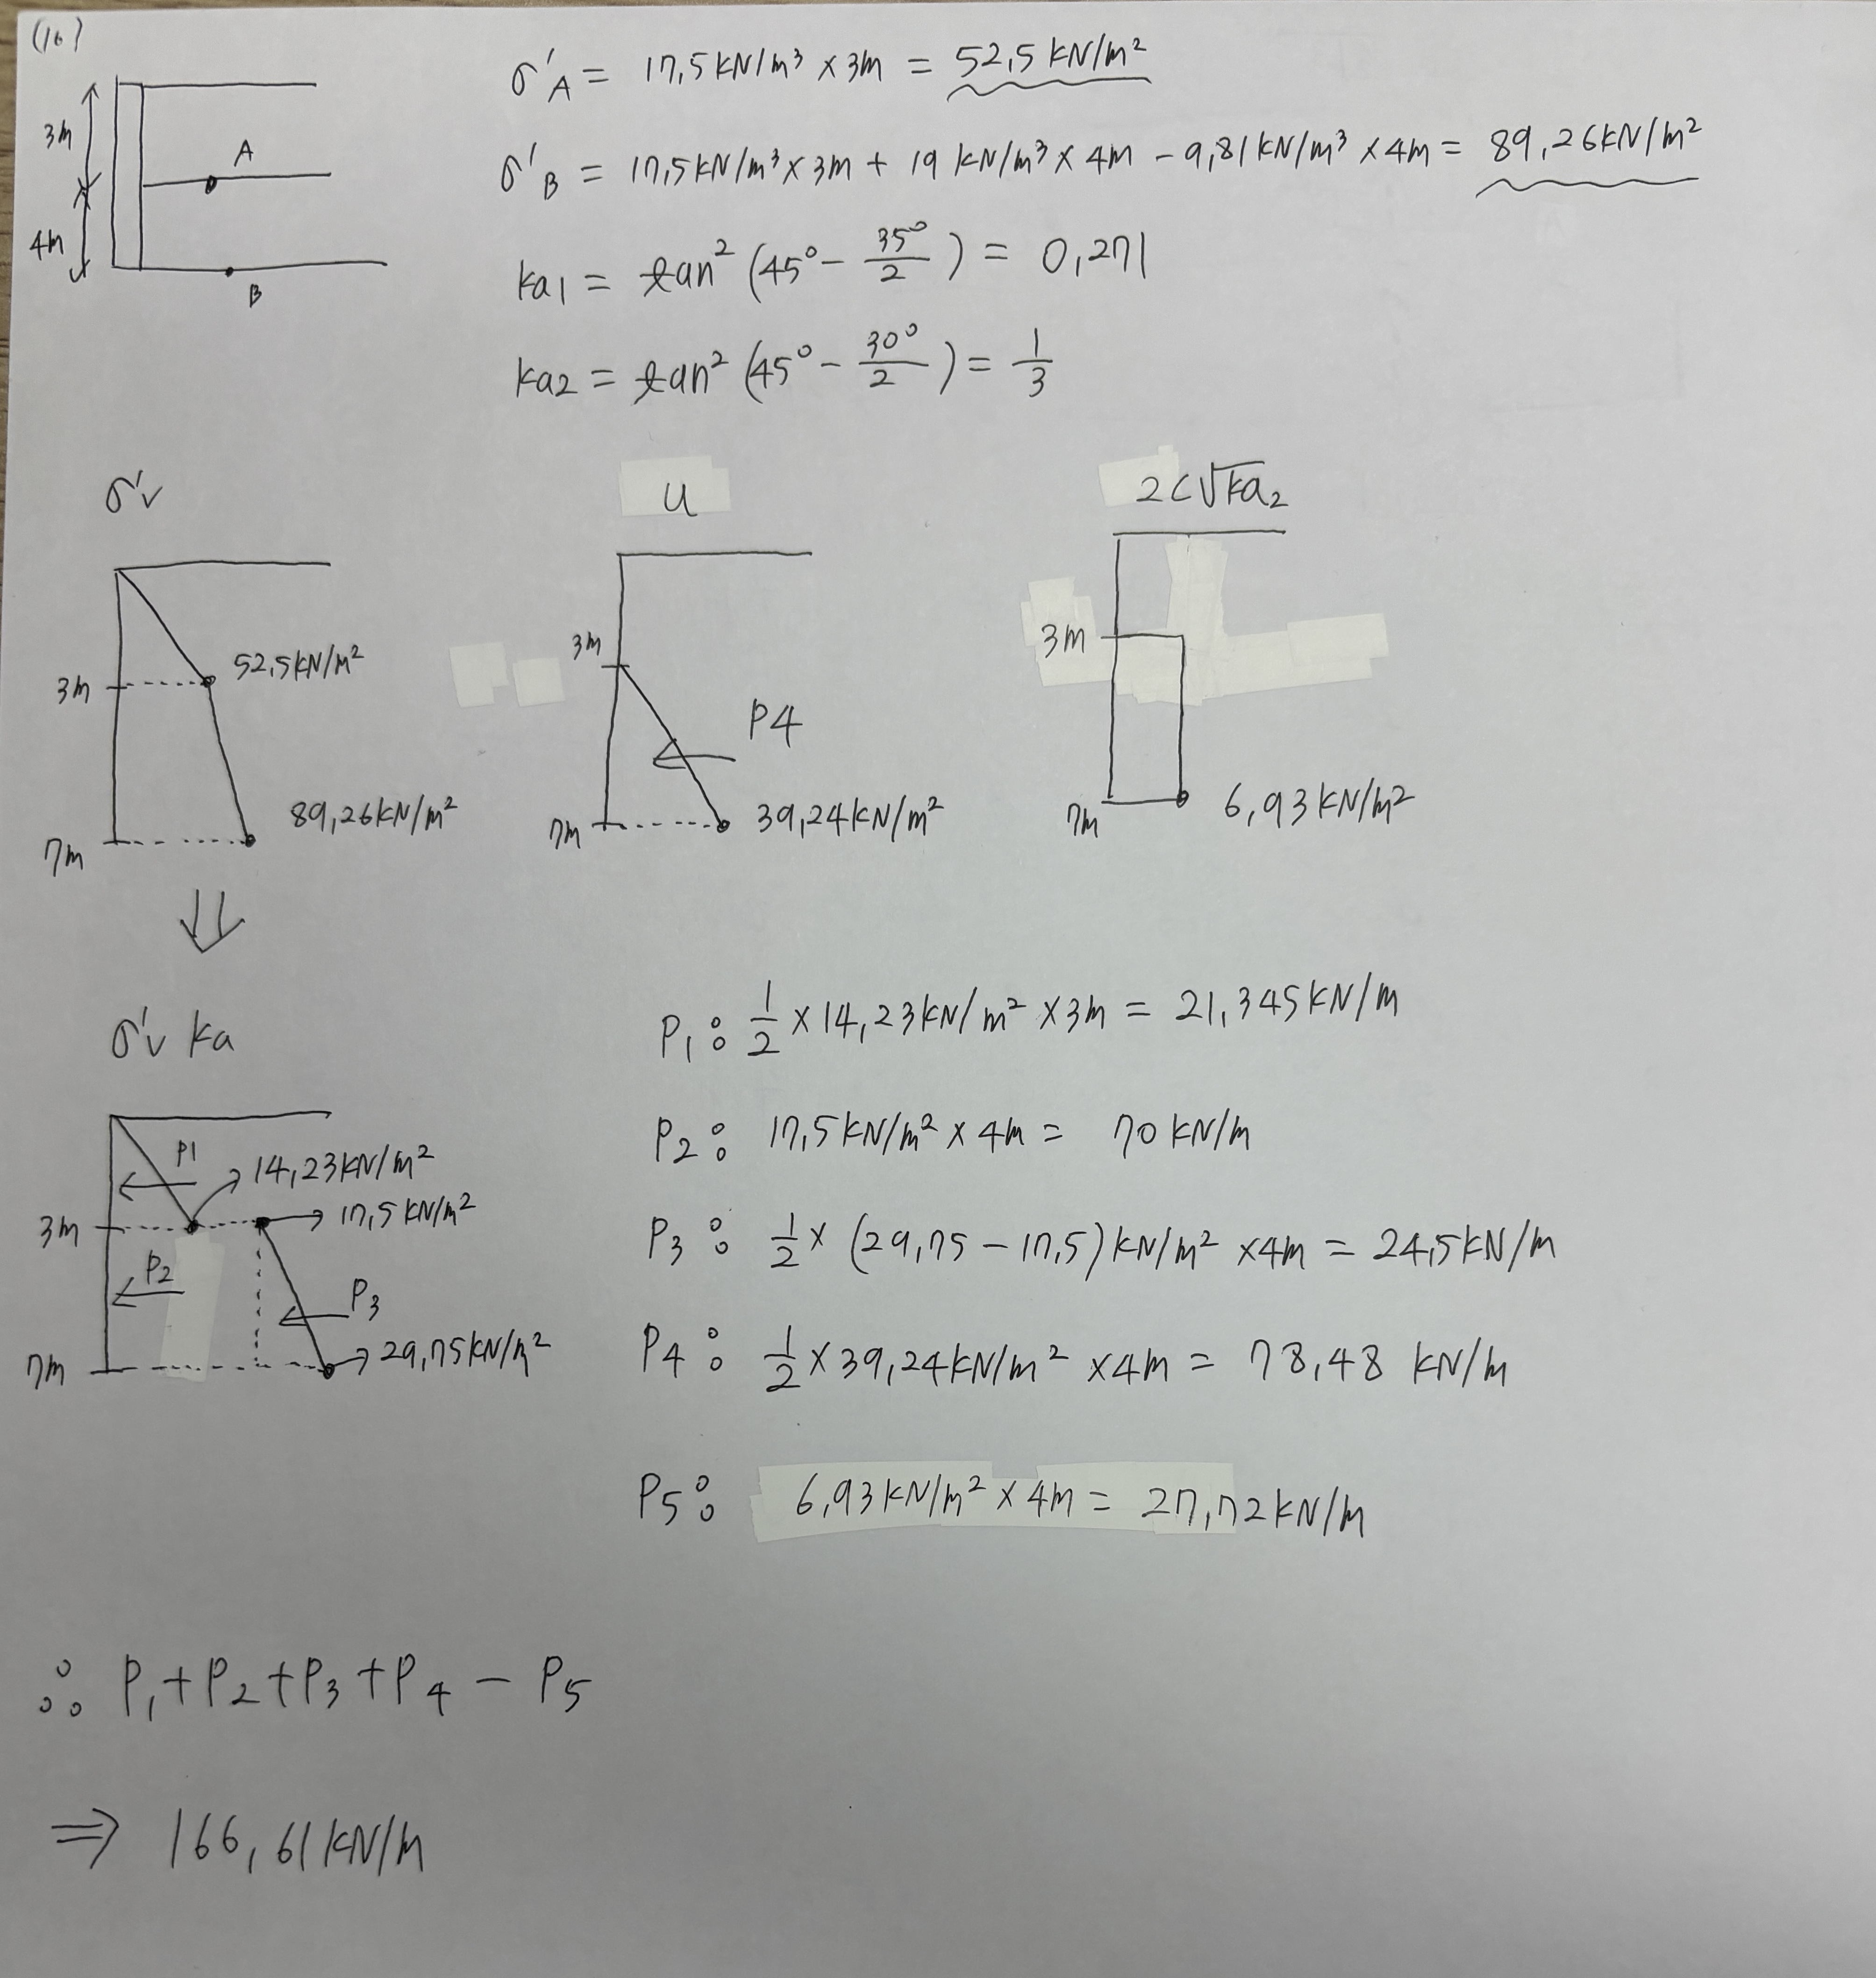 (16)
3m
A
4m
B
σ'A = 17,5 kN/m³ × 3m = 52,5 kN/m²
σ'B = 17,5 kN/m³ × 3m + 19 kN/m³ × 4m - 9,81 kN/m³ × 4m = 89,26 kN/m²
ka1 = tan² (45° - 35°/2) = 0,271
ka2 = tan² (45° - 30°/2) = 1/3
σ'v
3m
52,5 kN/m²
7m
89,26 kN/m²
u
3m
P4
7m
39,24 kN/m²
2c√ka2
3m
7m
6,93 kN/m²
σ'v ka
P1
14,23 kN/m²
3m
17,5 kN/m²
P2
P3
7m
29,75 kN/m²
P1 : 1/2 × 14,23 kN/m² × 3m = 21,345 kN/m
P2 : 17,5 kN/m² × 4m = 70 kN/m
P3 : 1/2 × (29,75 - 17,5) kN/m² × 4m = 24,5 kN/m
P4 : 1/2 × 39,24 kN/m² × 4m = 78,48 kN/m
P5 : 6,93 kN/m² × 4m = 27,72 kN/m
∴ P1 + P2 + P3 + P4 - P5
⇒ 166,61 kN/m